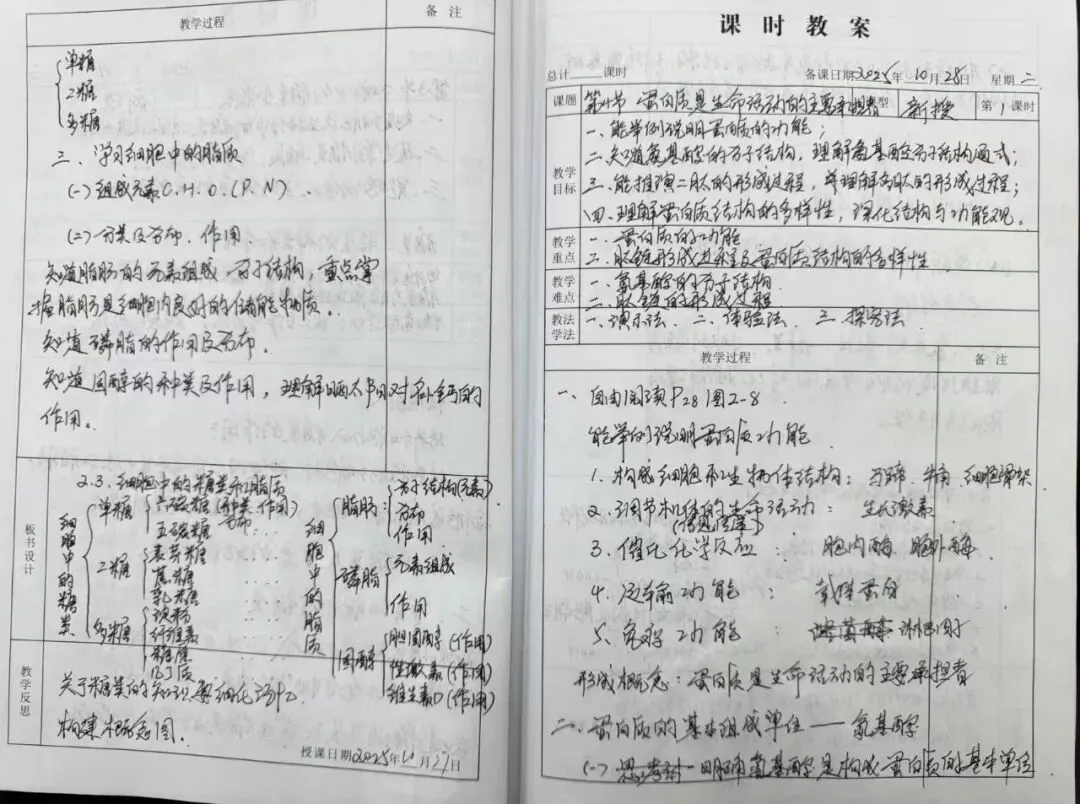 教学过程 备注
单糖
2糖
多糖
三、学习细胞中的脂质
(一)组成元素C.H.O.(P.N)
(二)分类及分布、作用
知道脂肪的元素组成、分子结构,重点掌
握脂肪是细胞内良好的储能物质。
知道磷脂的作用及分布。
知道固醇的种类及作用,理解晒太阳对补钙的
作用。
板书设计
2.3.细胞中的糖类和脂质
细胞中的糖类
单糖 六碳糖(种类、作用)
五碳糖 分布
2糖 麦芽糖
蔗糖
乳糖
多糖 淀粉
纤维素
糖原
几丁质
细胞中的脂质
脂肪: 分子结构(元素)
分布
作用
磷脂 元素组成
作用
固醇 胆固醇(作用)
性激素(作用)
维生素D(作用)
教学反思
关于糖类的知识要细化记忆
构建概念图.
授课日期2025年10月27日
课时教案
总计 课时 备课日期2025年10月28日 星期二
课题 第4节 蛋白质是生命活动的主要承担者 型 新授 第1课时
教学目标
一、能举例说明蛋白质的功能;
二、知道氨基酸的分子结构,理解氨基酸分子结构通式;
三、能推演二肽的形成过程,并理解多肽的形成过程;
四、理解蛋白质结构的多样性,深化结构与功能观。
教学重点
一、蛋白质的功能
二、肽链形成过程及蛋白质结构的多样性
教学难点
一、氨基酸的分子结构
二、肽链的形成过程
教法学法
一、演示法、二、体验法、三、探究法
教学过程 备注
一、自由阅读P28图2-8
能举例说明蛋白质功能
1.构成细胞和生物体结构:马蹄、牛角、细胞骨架
2.调节机体的生命活动:生长激素
(信息传递)
3.催化化学反应:胞内酶、胞外酶
4.运输功能:载体蛋白
5.免疫功能:
形成概念:蛋白质是生命活动的主要承担者
二、蛋白质的基本组成单位——氨基酸
(一)思考讨 明确氨基酸是构成蛋白质的基本单位